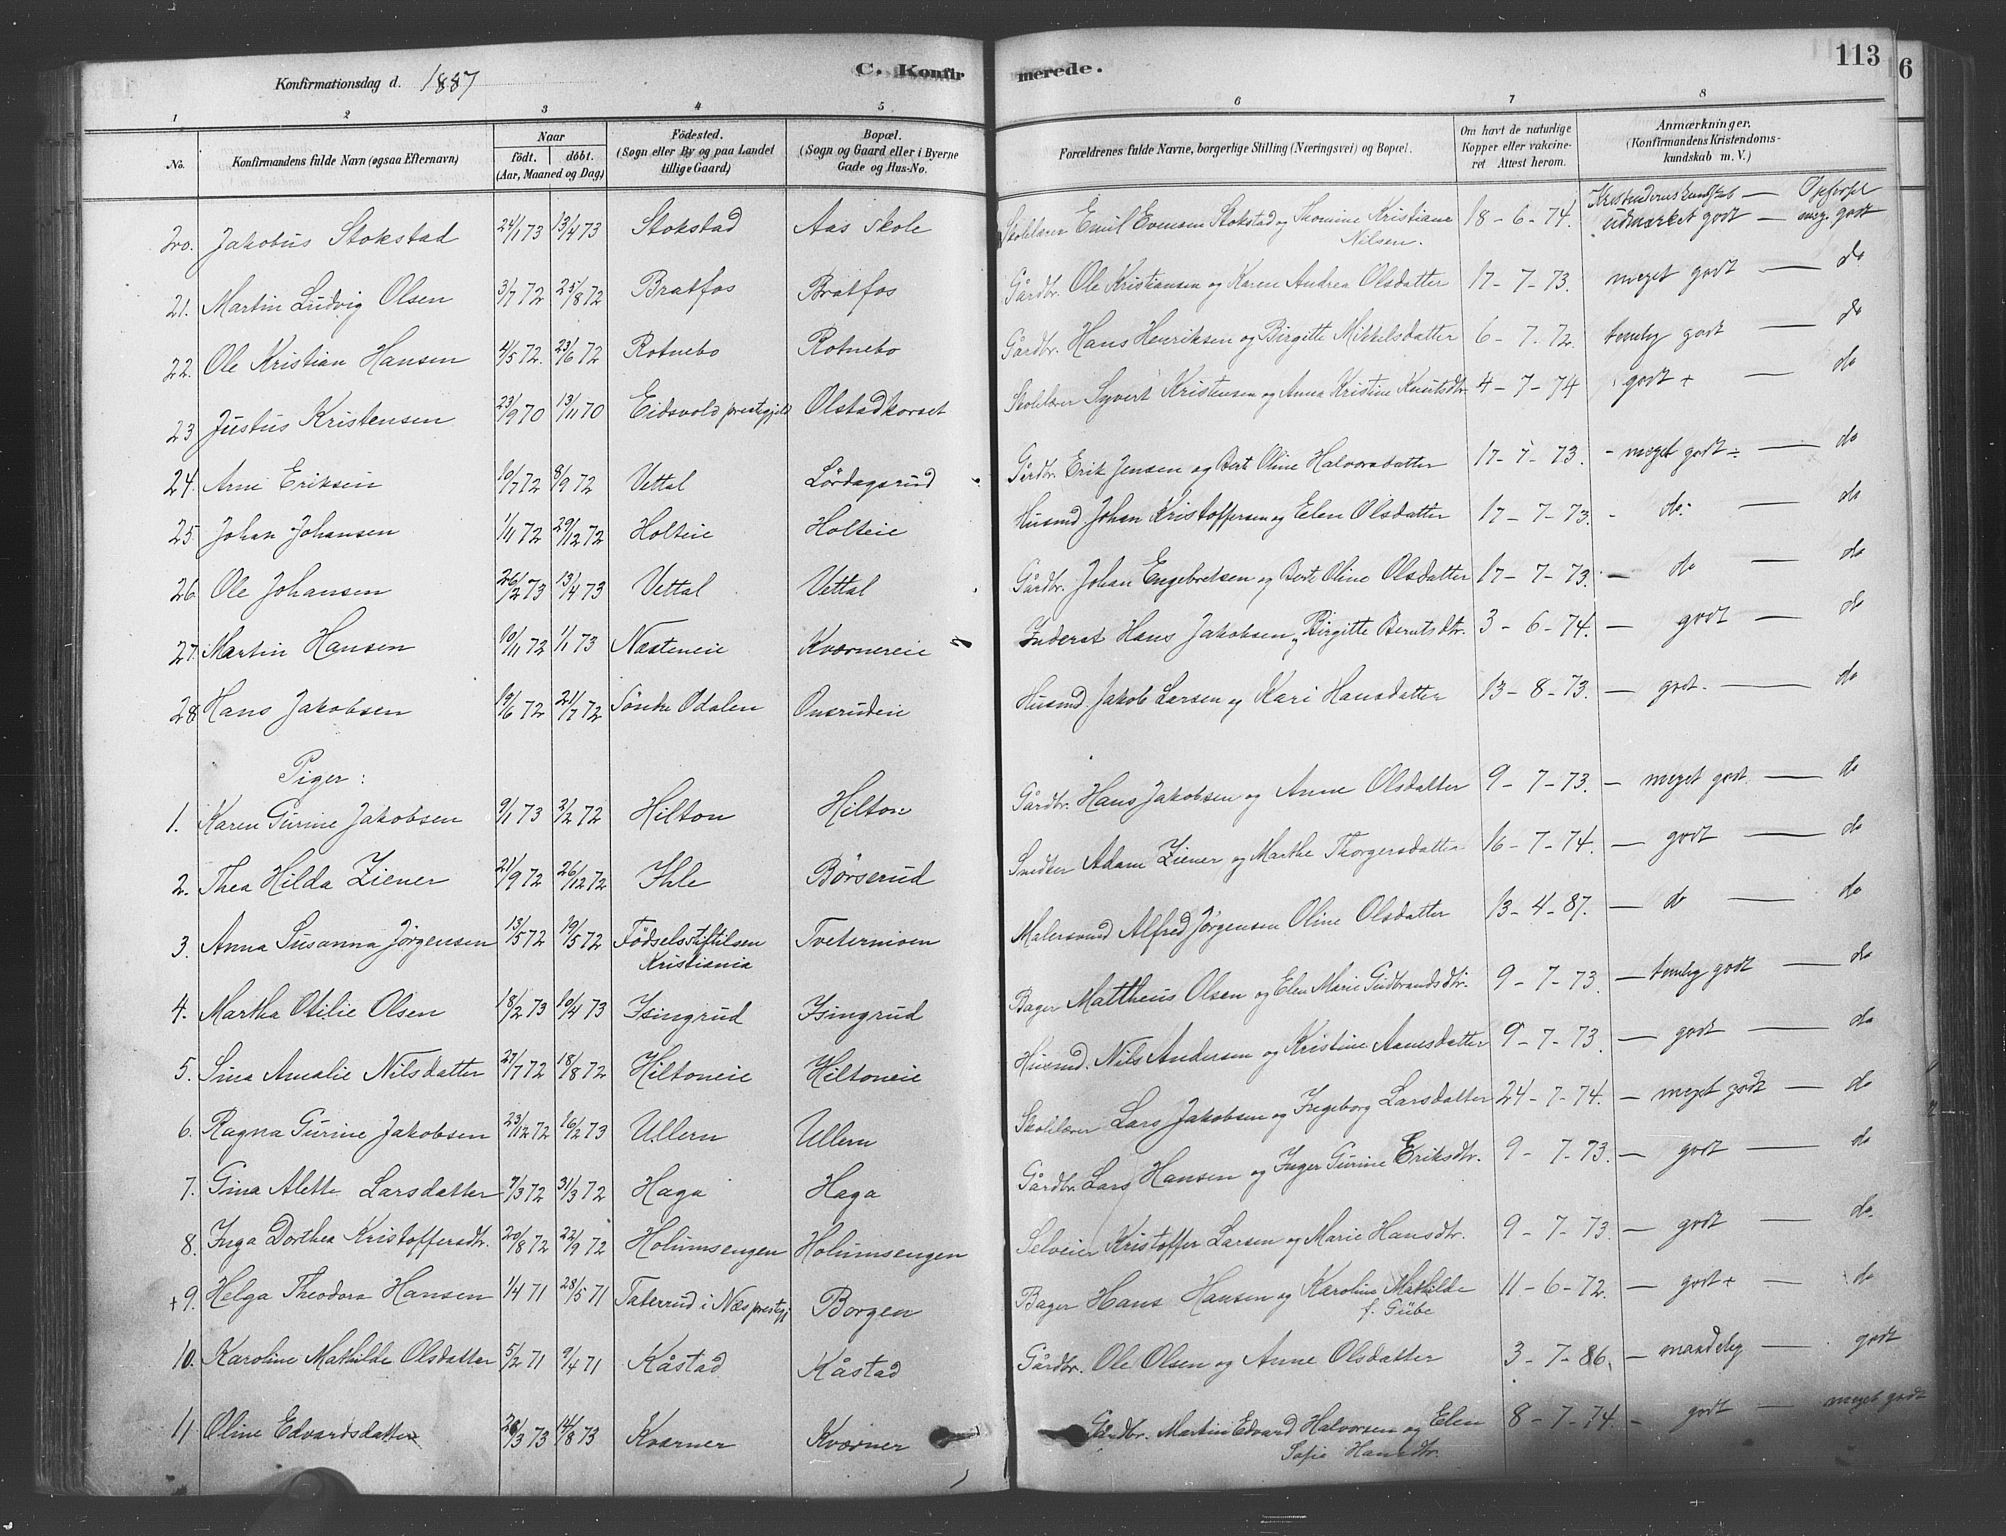 Konfirmationsdag d. 1887
C. Konfirmerede.
113
6
1 2 3 4 5 6 7 8
No.
Konfirmandens fulde Navn (ogsaa Efternavn)
Naar
födt. döbt.
(Aar, Maaned og Dag)
Födested.
(Sogn eller By og paa Landet
tillige Gaard)
Bopæl.
(Sogn og Gaard eller i Byerne
Gade og Hus-No.
Forældrenes fulde Navne, borgerlige Stilling (Næringsvei) og Bopæl.
Om havt de naturlige
Kopper eller vakcine-
ret Attest herom.
Anmærkninger.
(Konfirmandens Kristendoms-
kundskab m. V.)
Kristendomskundskab — Opførsel
20. Jakobus Stokstad 24/1 73 13/4 73 Stokstad Aas Skole Skolelærer Emil Evensen Stokstad og Thomine Kristiane Nilsen. 18-6-74. udmærket godt — meg. godt
21. Martin Ludvig Olsen 3/7 72 25/8 72 Bratfos Bratfos Gårdbr. Ole Kristiansen og Karen Andrea Olsdatter 17-7-73. meget godt — do
22. Ole Kristian Hansen 4/5 72. 23/6 72 Rotnebo Rotnebo Gårdbr. Hans Henriksen og Birgitte Mikkelsdatter 6-7-72. temlig godt — do
23 Justus Kristensen 23/9 70 13/11 70 Eidsvold prestegjeld Olstadkorset Skolelærer Syvert Kristensen og Anna Kristine Knutsdtr. 4-7-74 godt + — do
24. Arne Eriksen 10/7 72 8/9 72 Vettal Lørdagsrud Gårdbr. Erik Jensen og Bert Oline Halvorsdatter 17-7-73. - meget godt — do
25. Johan Johansen 1/11 72 29/12 72 Holteie Holteie Husmd. Johan Kristoffersen og Elen Olsdatter 17-7-73. - do. — do
26. Ole Johansen 26/2 73 13/4 73 Vettal Vettal Gårdbr. Johan Engebretsen og Berte Oline Olsdatter 17-7-73. — do — do
27. Martin Hansen 10/11 72 1/1 73 Næsteneie Kværnereie Inderst Hans Jakobsen og Birgitte Berntsdtr. 3-6-74. — godt — do
28 Hans Jakobsen 19/6 72 21/7 72 Söndre Odalen Onsrudeie Husmd. Jakob Larsen og Kari Hansdatter 13-8-73. — godt. — do
Piger:
1. Karen Gurine Jakobsen 9/1 73 2/2 72 Hilton Hilton Gårdbr. Hans Jakobsen og Anne Olsdatter 9-7-73. — meget godt. — do
2. Thea Hilda Ziener 21/9 72 26/12 72 Ihle Børserud Snedker Adam Ziener og Marthe Thorgersdatter 16-7-74. — godt — do
3. Anna Susanna Jørgensen 13/5 72 19/5 72 Födselsstiftelsen Kristiania Tveternioen Malersvend Alfred Jørgensen Oline Olsdatter 13-4-87. — do — do
4. Martha Otilie Olsen 18/2 73 10/4 73 Isingrud Isingrud Bager Mattheus Olsen og Elen Marie Gudbrandsdtr. 9-7-73. — temlig godt — do
5. Sina Amalie Nilsdatter 27/7 72 18/8 72 Hiltoneie Hiltoneie Husmd. Nils Andersen og Kristine Arnesdatter 9-7-73. — godt — do
6. Ragna Gurine Jakobsen 23/12 72 16/2 73 Ullern Ullern Skolelærer Lars Jakobsen og Ingeborg Larsdatter 24-7-74. — meget godt — do
7. Gina Alette Larsdatter 7/3 72 31/3 72 Haga Haga Gårdbr. Lars Hansen og Inger Gurine Eriksdtr. 9-7-73. — godt — do
8. Inga Dorthea Kristoffersdtr. 20/8 72 22/9 72 Holumsengen Holumsengen Selveier Kristoffer Larsen og Marie Hansdtr. 9-7-73. — godt — do.
+ 9. Helga Theodora Hansen 1/4 71 28/5 71 Taterrud i Næs prestegj Borgen Bager Hans Hansen og Karoline Mathilde f. Gübe 11-6-72. — godt + — do
10. Karoline Mathilde Olsdatter 5/2 71 9/4 71 Kåstad Kåstad Gårdbr. Ole Olsen og Anne Olsdatter 3-7-86. — maadelig — godt
11 Oline Edvardsdatter 28/3 73 14/8 73 Kværner Kværner Gårdbr. Martin Edvard Halvorsen og Elen Sofie Hansdtr. 8-7-74. — godt — meget godt